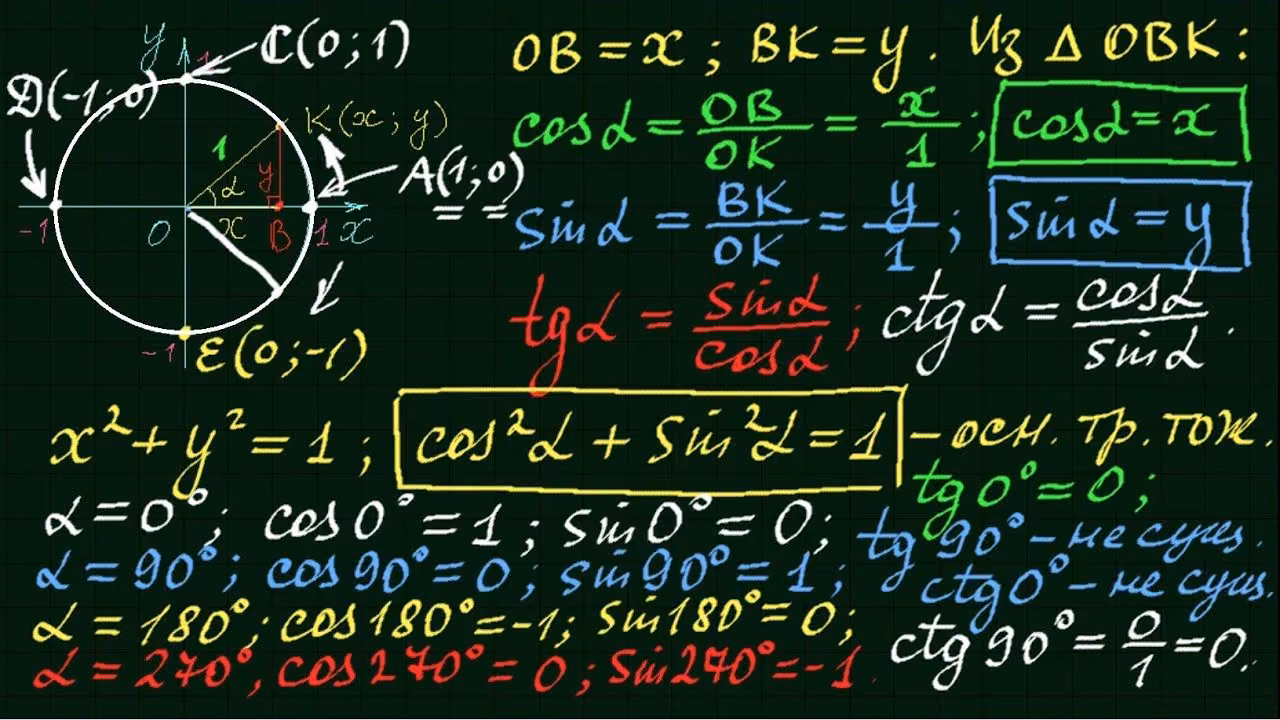 y 1
C(0;1)
D(-1;0)
K(x;y)
1
y
α
A(1;0)
-1
O
x
B
1
x
-1
E(0;-1)
OB = x ; BK = y . Из Δ OBK :
cosα = OB/OK = x/1 ; cosα = x
sinα = BK/OK = y/1 ; sinα = y
tgα = sinα/cosα ; ctgα = cosα/sinα .
x² + y² = 1 ; cos²α + sin²α = 1 – осн. тр. тож.
tg0° = 0 ;
α = 0° ; cos0° = 1 ; sin0° = 0 ; tg90° – не сущ.
α = 90° ; cos90° = 0 ; sin90° = 1 ; ctg0° – не сущ.
α = 180° ; cos180° = -1 ; sin180° = 0 ;
ctg90° = 0/1 = 0 .
α = 270° , cos270° = 0 ; sin270° = -1 .